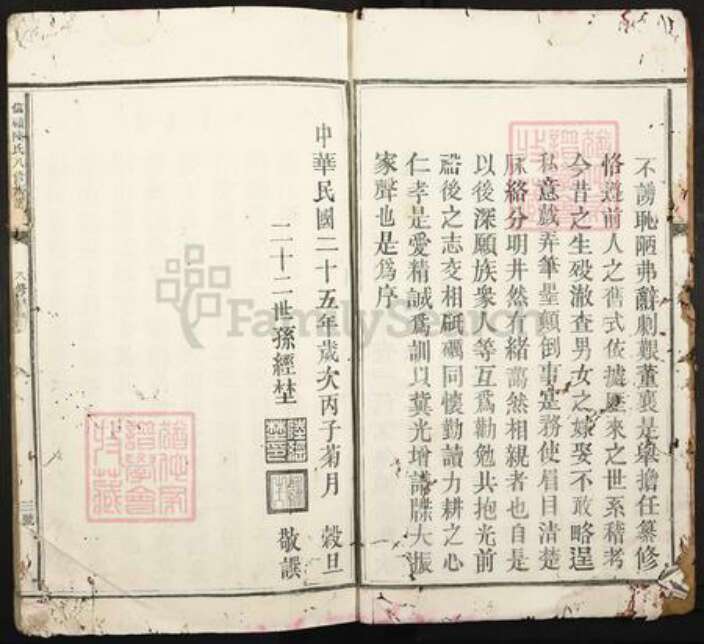 不謗恥陋弗辭剞艱董襄是舉擔任纂修
恪遵前人之舊式依據歷來之世系稽考
今昔之生歿澈查男女之嫁娶不敢略逞
私意戲弄筆墨顛倒事寔務使眉目清楚
脈絡分明井然有緒藹然相親者也自是
以後深願族衆人等互爲勸勉共抱光前
裕後之志交相砥礪同懷勤讀力耕之心
仁孝是愛精誠爲訓以冀光增譜牒大振
家聲也是爲序
中華民國二十五年歲次丙子菊月 穀旦
二十二世孫經埜 敬譔
陳氏八修族譜
三號
FamilySearch